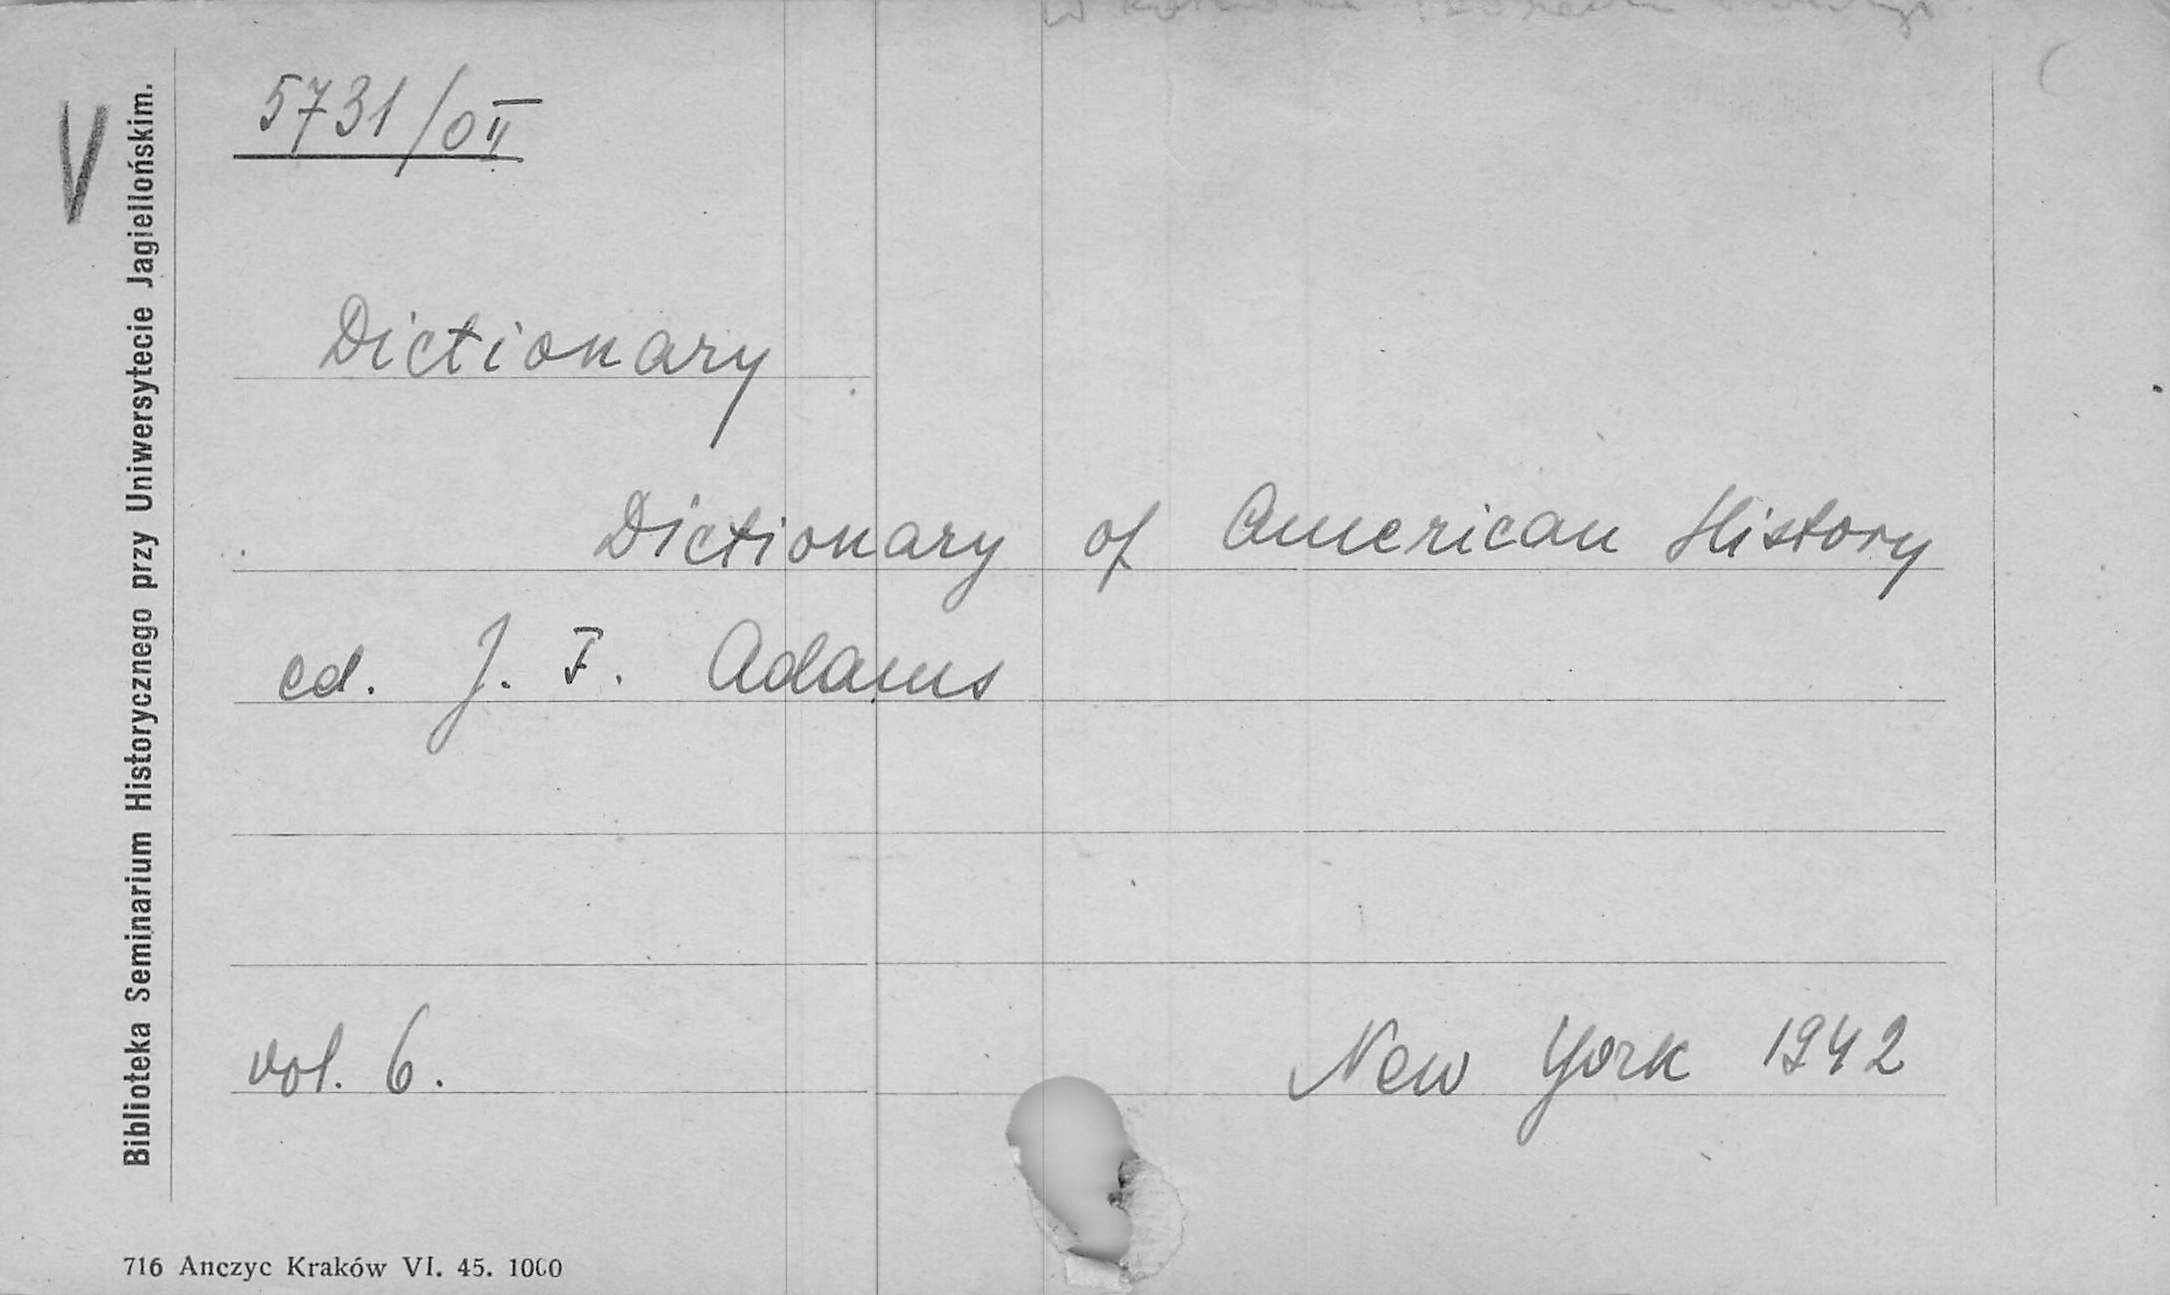 V
5731/0II
Dictionary
Dictionary of American History
ed. J. F. Adams
vol. 6.
New York 1942
Biblioteka Seminarium Historycznego przy Uniwersytecie Jagiellońskim.
716 Anczyc Kraków VI. 45. 1000